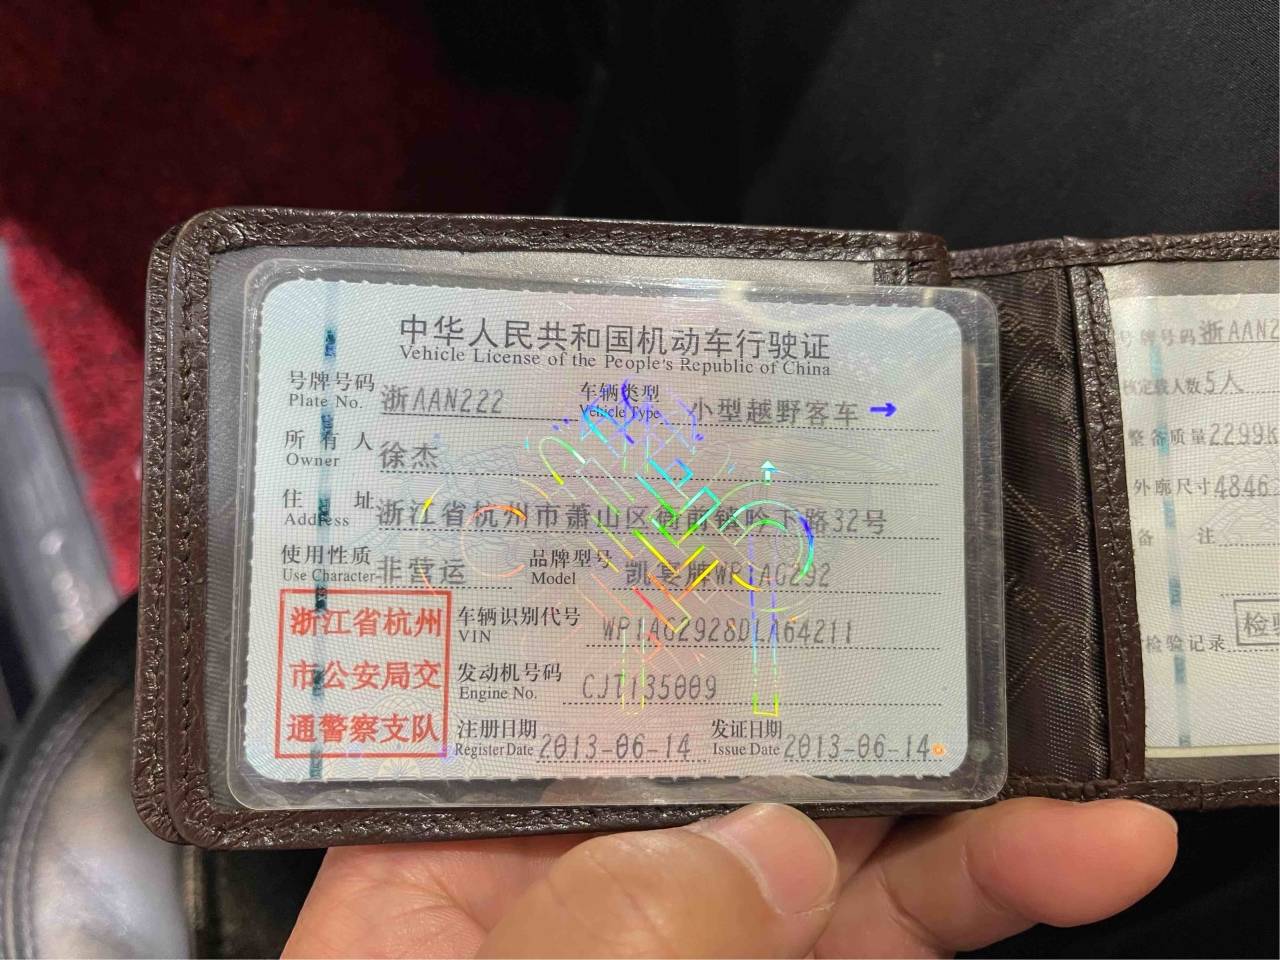 中华人民共和国机动车行驶证
Vehicle License of the People's Republic of China
号牌号码 浙AAN222 车辆类型 小型越野客车
Plate No. Vehicle Type
所有人 徐杰
Owner
住址 浙江省杭州市萧山区 路32号
Address
使用性质 非营运 品牌型号 牌WP1AG292
Use Character Model
浙江省杭州
市公安局交
通警察支队
车辆识别代号 WP1AG2928DLA64211
VIN
发动机号码 CJT135009
Engine No.
注册日期 2013-06-14 发证日期 2013-06-14
Register Date Issue Date
号牌号码 浙AAN2
核定载人数 5人
整备质量 2299K
外廓尺寸 4846
备注
检验记录 检